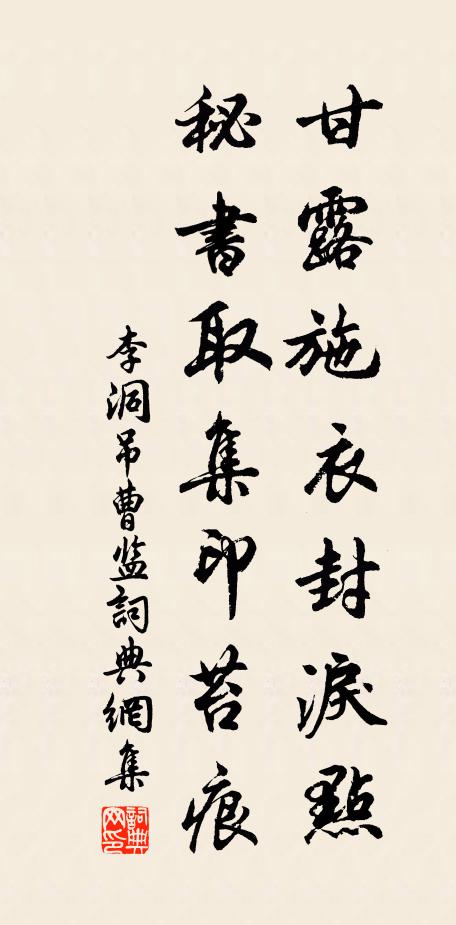 甘露施衣封淚點
秘書取集印苔痕
李洞吊曹监詞典網集
詞典网印